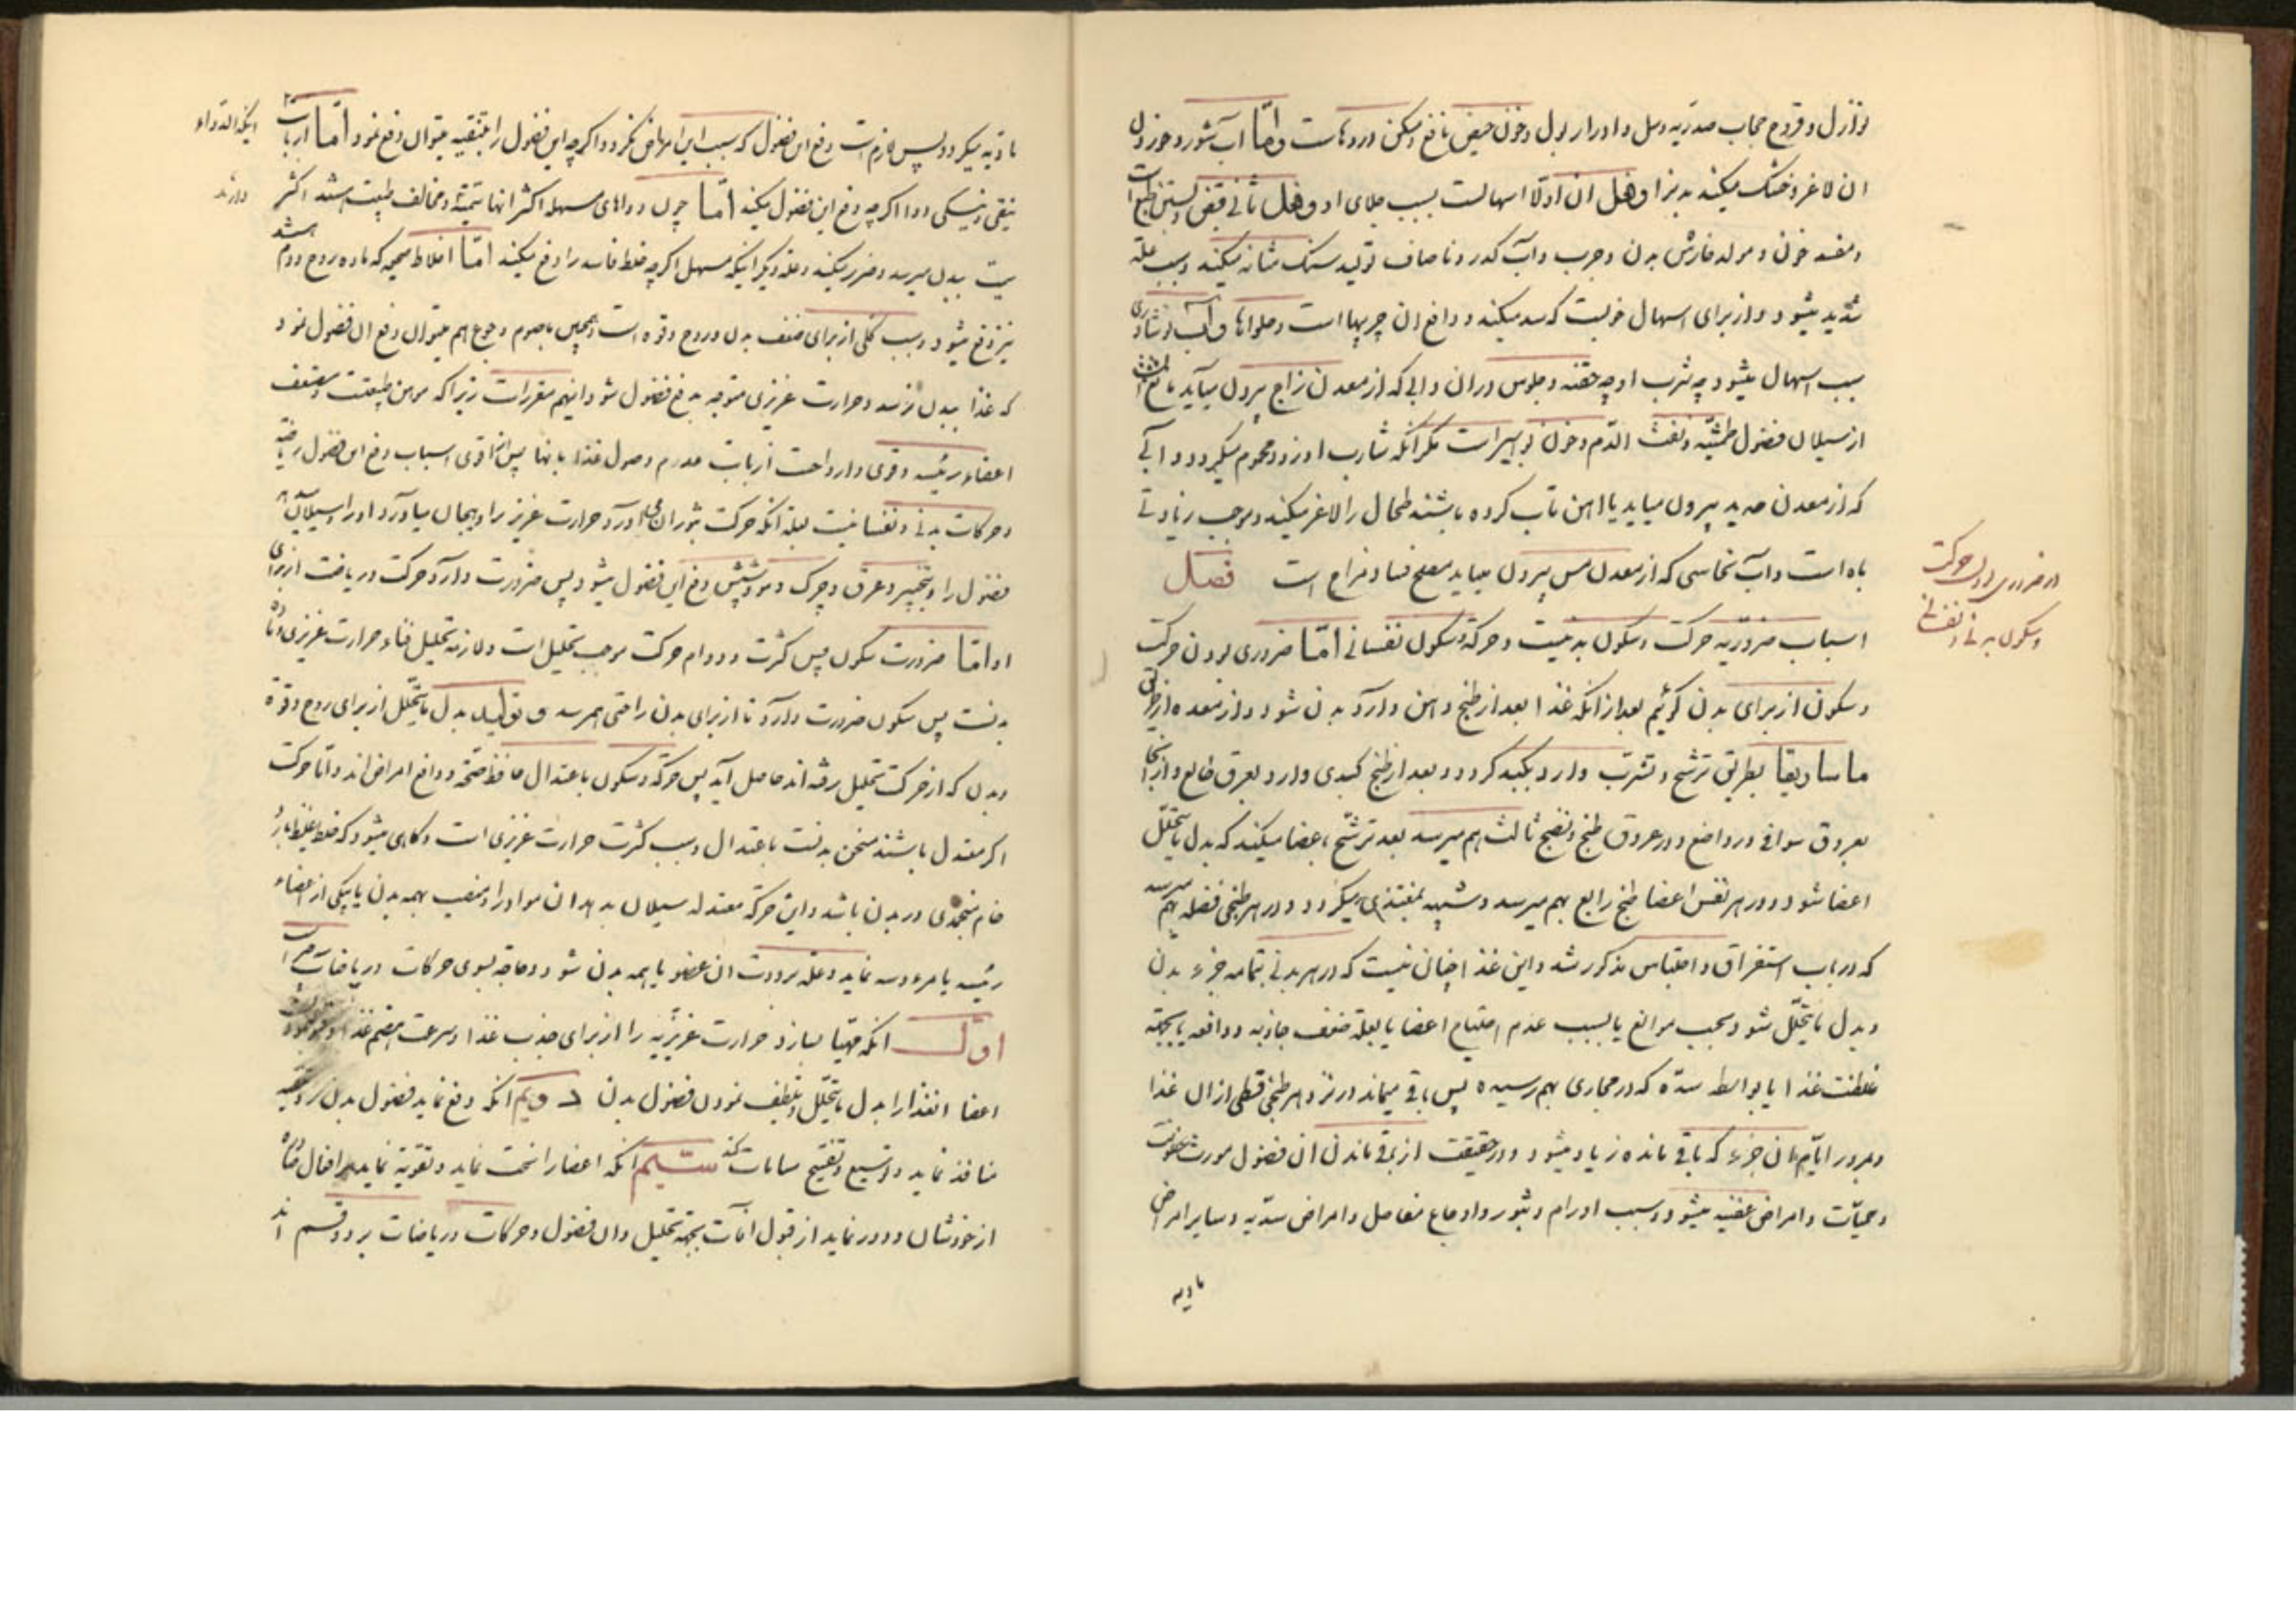 نوازل و قروح حجاب صدریه و سل و ادرار بول و خون حیض نافع و مسکن دردهاست و امّا آب شور و خوردن
ان لاغر و خشک میکند بدنرا و فعل ان اولا اسهالست بسبب جلای او و فعل ثانی قبض و بستن طبع است
و مفسد خون و مولد خارش بدن و جرب و آب کدر و ناصاف تولید سنک مثانه میکند و سبب علة
شدید میشود و از برای اسهال خوبست که سده میکند و دافع ان چربیها است و حلواها و آب نوشادری
سبب اسهال میشود چه شرب او چه حقنه و جلوس در ان و ابی که از معدن زاج بیرون میآید مانع است
از سیلان فضول طمثیّه و نفث الدّم و خون بواسیر است مکر انکه شارب او زود محموم میکردد و آبی
که از معدن حدید بیرون میاید یا اهن تاب کرده باشند طحال را لاغر میکند و موجب زیادتی
باه است و آب نحاسی که از معدن مس بیرون میاید مصلح فساد مزاج است فصل
اسباب ضروریّه حرکت و سکون بدنیست و حرکة و سکون نفسانی امّا ضروری بودن حرکت
و سکون از برای بدن کوئیم بعد از انکه غذا بعد از طبخ و هضم وارد بدن شود و از معده از طریق
ماساریقا بطریق ترشح و تشرب وارد بکبد کردد و بعد از طبخ کبدی وارد بعرق طالع و از انجا
بعروق سواقی و رواضع و در عروق طبخ و نضج ثالث بهم میرسد بعد ترشّح باعضا میکند که بدل مایتحلّل
اعضا شود و در هر نفس اعضا طبخ رابع بهم میرسد و شبیه بمغتذی میکردد و در هر طبخی فضله بهم میرسد
که در باب استفراق و احتباس مذکور شد و این غذا چنان نیست که در هر بدنی بتمامه جزء بدن
و بدل مایتحلّل شود بحسب موانع یا بسبب عدم احتیاج اعضا یا بعلة ضعف جاذبه و دافعه یا بجهة
غلظت غذا یا بواسطه سدّه که در مجاری بهم رسیده پس باقی میماند در نزد هر طبخی قسطی از ان غذا
و بمرور ایّام ان جزء که باقی مانده زیاد میشود و در حقیقت از باقی ماندن ان فضول مورث عفونت
و حمیّات و امراض عفنیه میشود و سبب اورام و بثور و اوجاع مفاصل و امراض سدّیه و سایر امراض
مادیه
در ضروری بودن حرکت
و سکون بدنی و نفسانی
مادّیه میکردد پس لازم است دفع این فضول که سبب این امراض نکردد و اکرچه این فضول را بتنقیه میتوان دفع نمود امّا ارباب
تنقی و نیکی دوا اکرچه دفع این فضول میکند امّا چون دواهای مسهله اکثر انها سمّیة و مخالف طبیعت باشند اکثر
ببدن میرسد و ضرر میکند و علة دیکر اینکه مسهل اکرچه خلط فاسد را دفع میکند امّا اخلاط صحیحه که ماده روح و دم باشد
نیز دفع میشود و سبب کلی از برای ضعف بدن و روح و قوه است و همچنین بصوم و جوع هم میتوان دفع ان فضول نمود
که غذا ببدن نرسد و حرارت غریزی متوجه بدفع فضول شود اینهم مضر است زیرا که موهن طبیعت و مضعف
اعضاء رئیسه و قوی و ارواحست از بابت عدم وصول غذا بانها پس اقوی اسباب دفع این فضول ریاضة
و حرکات بدنی و نفسانیست بعلة انکه حرکت بثوران میاورد حرارت غریزیرا و بهیجان میاورد او را و سیلان
فضول را و بتبخیر و عرق و چرک و مو و شپش دفع این فضول میشود پس ضرورت دارد حرکت و ریاضت از برای
او امّا ضرورت سکون پس کثرت و دوام حرکت موجب تحلیل است و لازمه تحلیل فناء حرارت غریزی و فنای
بدنست پس سکون ضرورت دارد تا از برای بدن راحتی بهمرسد و تولید بدل مایتحلّل از برای روح و قوة
و بدن که از حرکت تحلیل رفته اند حاصل آید پس حرکة و سکون باعتدال حافظ صحّة و دافع امراض اند و امّا حرکت
اکر معتدل باشند مسخن بدنست باعتدال و سبب کثرت حرارت غریزی است و کاهی میشود که خلط غلیظ بارد
خام منجمدی در بدن باشد و این حرکة معتدله سیلان بدهد ان مواد را و منصب بهمه بدن یا بیکی از اعضاء
رئیسه یا مرءوسه نماید و علة برودت ان عضو یا همه بدن شود و حاجة بسوی حرکات و ریاضات
اوّل انکه مهّیا بسازد حرارت غریزیه را از برای جذب غذا و سرعت هضم غذا
اعضا انغذا را بدل مایتحلّل و تلطیف نمودن فضول بدن دویم انکه دفع نماید فضول بدن را و تنقیه
منافذ نماید و توسیع و تفتیح مسامات کند سیّم انکه اعضا را سخت نماید و تقویة نماید بر افعال صادره
از خودشان و دور نماید از قبول آفات بجهة تحلیل دادن فضول و حرکات و ریاضات بر دو قسم اند
اینکه الدّواء
دارند